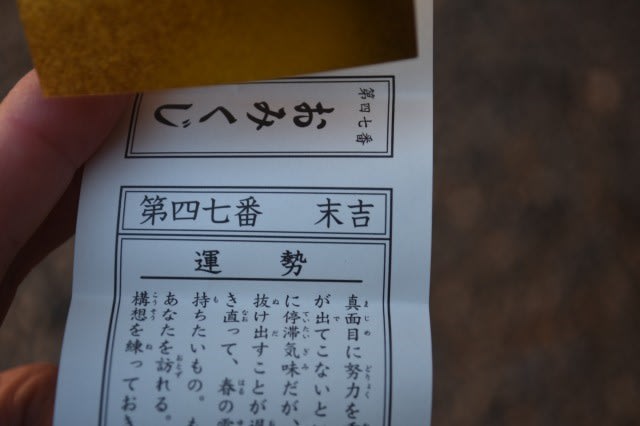 第四七番
おみくじ
第四七番 末吉
運勢
真面目に努力を
が出てこないとい
に停滞気味だが、
抜け出すことが
き直って、春の
持ちたいもの。も
あなたを訪れる。
構想を練っておき